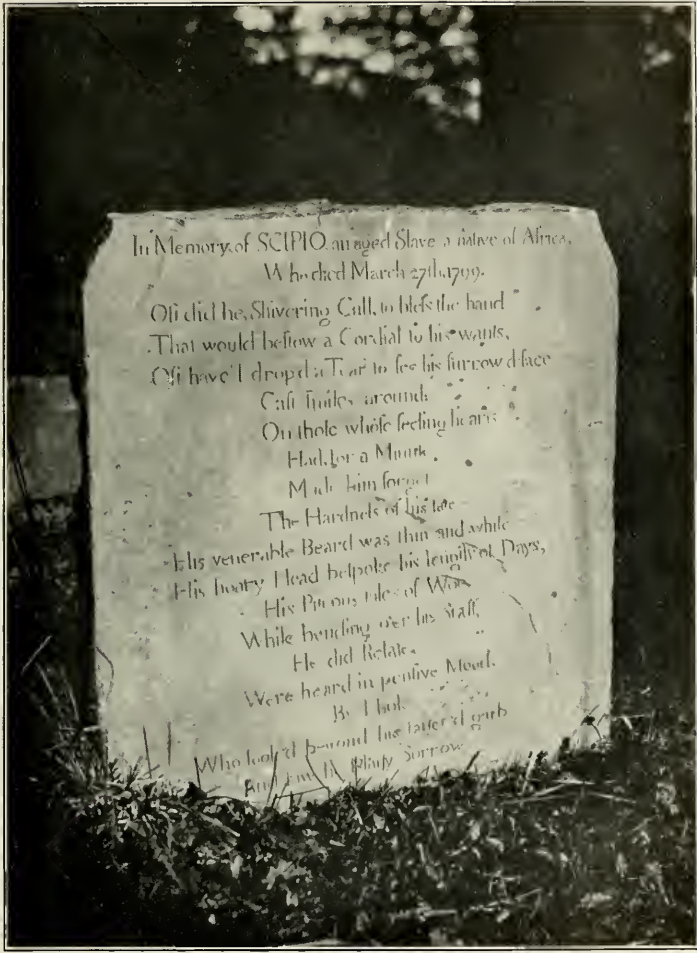 In Memory of SCIPIO, an aged Slave a native of Africa,
Who died March 27th, 1799.
Oft did he, Shivering Call, to bleſs the hand
That would beſtow a Cordial to his wants,
Oft have I drop'd a Tear to ſee his furrow'd face
Caſt ſmiles around:
On thoſe whoſe feeling hearts
Had, for a
Made him forget
The Hardneſs of his fate
His venerable Beard was thin and white
His hoary Head beſpoke his length of Days,
His Piteous tales of Woe
While bending o'er his Staff,
He did Relate,
Were heard in penſive Mood.
By Thoſe
Who look'd beyond his tatter'd garb
And ſaw his Sorrow